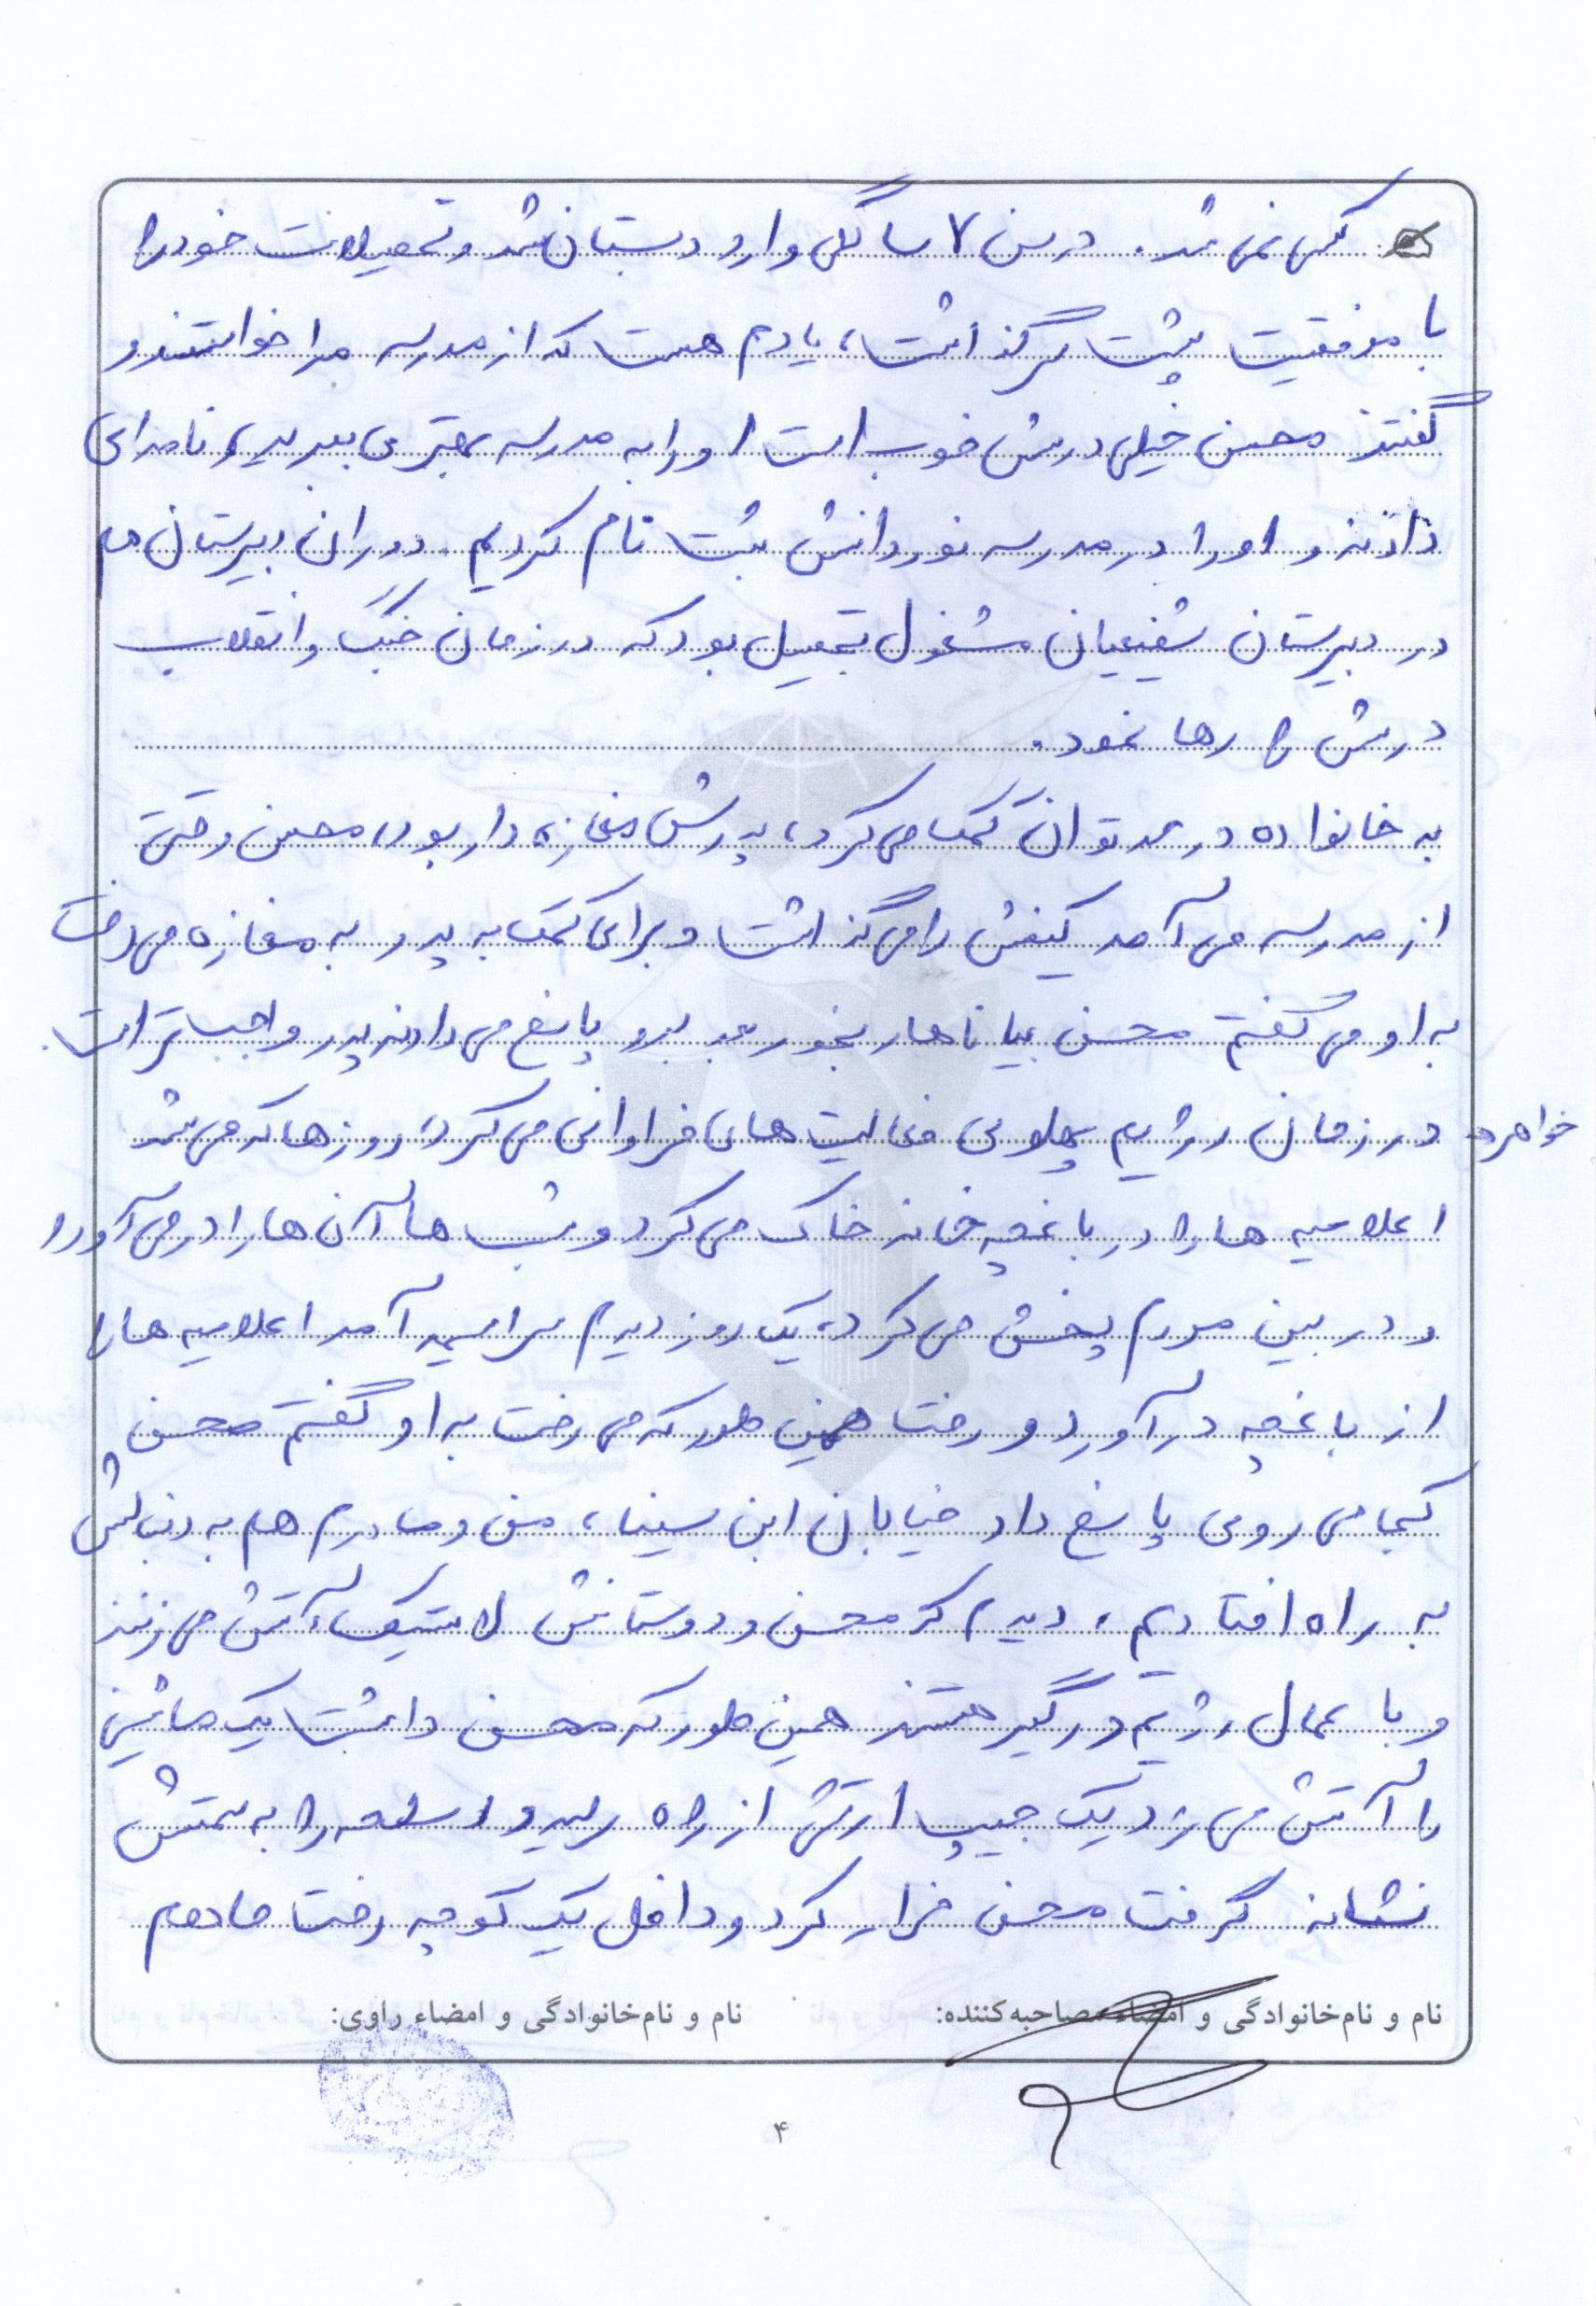 کسی نمی شد. در سن ۷ سالگی وارد دبستان شد و تحصیلات خود را
با موفقیت پشت سر گذاشت، یادم هست که از مدرسه مرا خواستند و
گفتند محسن خیلی درسش خوب است او را به مدرسه بهتری ببرید، نامه ای
دادند و او را در مدرسه نور دانش ثبت نام کردیم. دوران دبیرستان هم
در دبیرستان شفیعیان مشغول تحصیل بود که در زمان جنگ و انقلاب
درسش را رها نمود.
به خانواده در حد توان کمک می کرد، پدرش مغازه دار بود، محسن وقتی
از مدرسه می آمد کیفش را می گذاشت و برای کمک به پدر به مغازه می رفت
به او می گفتم محسن بیا ناهار بخور بعد برو پاسخ می دادند پدر واجب تر است.
خواهر: در زمان رژیم پهلوی فعالیت های فراوانی می کرد، روزها که می شد
اعلامیه ها را در باغچه خانه خاک می کرد و شب ها آن ها را در می آورد
و در بین مردم پخش می کرد، یک روز دیدم سراسیمه آمد اعلامیه ها را
از باغچه در آورد و رفت همین طور که می رفت به او گفتم محسن
کجا می روی پاسخ داد خیابان ابن سینا، من و مادرم هم به دنبالش
به راه افتادیم، دیدم که محسن و دوستانش لاستیک آتش می زنند
و با عمال رژیم درگیر هستند همین طور که محسن داشت یک ماشین
را آتش می زد یک جیپ ارتش از راه رسید و اسلحه را به سمتش
نشانه گرفت محسن فرار کرد و داخل یک کوچه رفت ما هم
نام و نام‌خانوادگی و امضاء مصاحبه‌کننده: نام و نام‌خانوادگی و امضاء راوی:
۴